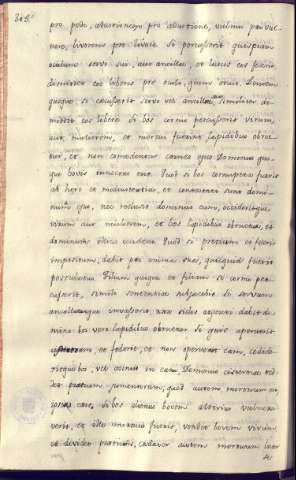 pro pede, adustionem pro adustione, vulnus pro vul-
nere, livorem pro livore. Si percusserit quispiam
oculum servi sui, aut ancillæ, et luscos eos fecerit
dimittet eos liberos pro oculo, quem eruit. Dentem
quoque si excusserit servo vel ancillæ suæ, similiter di-
mittet eos liberos. Si bos cornu percusserit virum,
aut mulierem, et mortui fuerint lapidibus obrue-
tur, et non comedentur carnes ejus, Dominus quo-
que bovis innocens erit. Quod si bos cornupeta fuerit
ab heri et
dominum ejus, nec recluserit dominus eum, occideritque
virum aut mulierem, et bos lapidibus obruetur, et
dominum illius occident. Quod si pretium ei fuerit
impositum, dabit pro anima sua, quidquid fuerit
postulatus. Filium quoque et filiam si cornu per-
cusserit, simili sententiæ subjacebit. Si servum
ancillamque invaserit, triginta siclos argenti dabit do-
mino, bos vero lapidibus obruetur. Si quis aperuerit
cisternam, et foderit, et non operuerit eam, cecide-
ritque bos, vel asinus in eam, Dominus cisternæ red-
det pretium jumentorum, quod autem mortuum est
ipsius erit. Si bos alienus bovem alterius vulnera-
verit, et ille mortuus fuerit, vendet bovem vivum
et dividet pretium, cadaver autem mortui inter